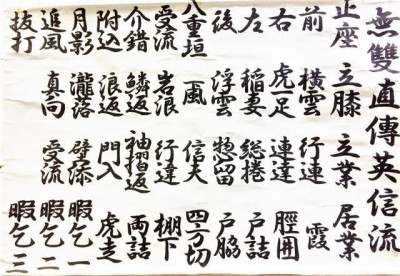 無雙直傳英信流
正座 立膝 立業 居業
前 横雲 行連 霞
右 虎一足 連達 脛囲
左 稲妻 総捲 戸詰
後 浮雲 惣留 戸脇
八重垣 颪 信夫 四方切
受流 岩浪 行違 棚下
介錯 鱗返 袖摺返 両詰
附込 浪返 門入 虎走
月影 瀧落 壁添 暇乞一
追風 真向 受流 暇乞二
抜打 暇乞三